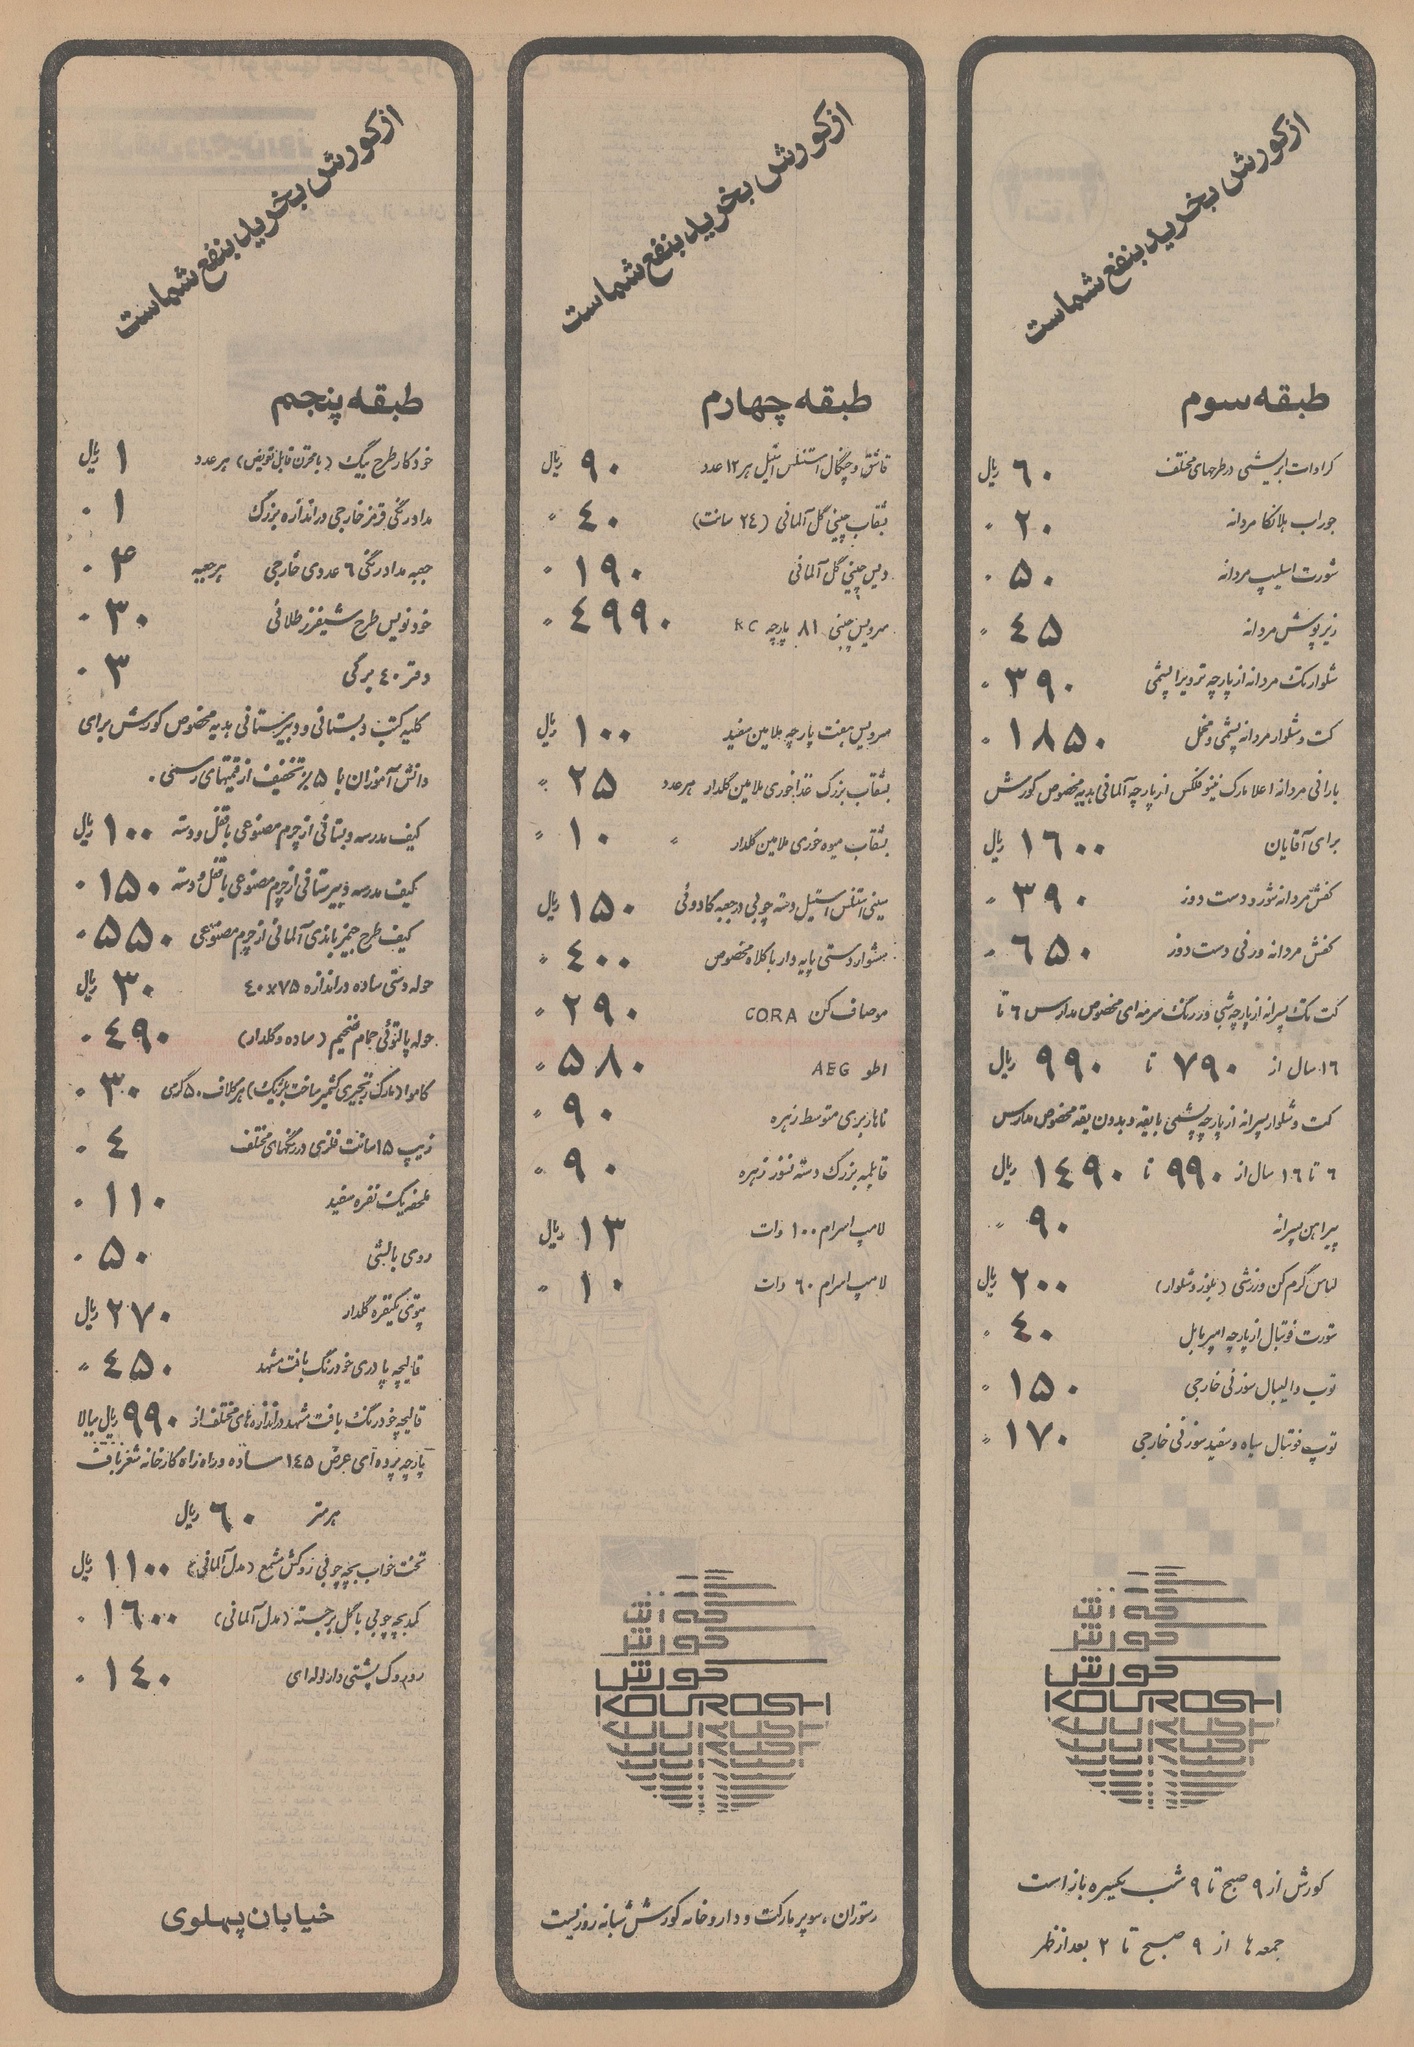 از کورش بخرید بنفع شماست
طبقه سوم
کراوات ابریشمی در طرحهای مختلف ٦۰ ریال
جوراب هلانکا مردانه ۲۰ "
شورت اسلیپ مردانه ۵۰ "
زیرپوش مردانه ٤۵ "
شلوار تک مردانه از پارچه ترویرا پشمی ۳۹۰ "
کت و شلوار مردانه پشمی و مخمل ۱۸۵۰ "
بارانی مردانه اعلا مارک نینو فلکس از پارچه آلمانی هدیه مخصوص کورش
برای آقایان ۱٦۰۰ ریال
کفش مردانه شورو دست دوز ۳۹۰ "
کفش مردانه ورنی دست دوز ٦۵۰ "
کت تک پسرانه از پارچه پشمی در رنگ سرمه ای مخصوص مدارس ٦ تا
۱٦ سال از ۷۹۰ تا ۹۹۰ ریال
کت و شلوار پسرانه از پارچه پشمی با یقه و بدون یقه مخصوص مدارس
٦ تا ۱٦ سال از ۹۹۰ تا ۱٤۹۰ ریال
پیراهن پسرانه ۹۰ "
لباس گرم کن ورزشی (بلوز و شلوار) ۲۰۰ ریال
شورت فوتبال از پارچه امپریابل ٤۰ "
توپ والیبال سوزنی خارجی ۱۵۰ "
توپ فوتبال سیاه و سفید سوزنی خارجی ۱۷۰ "
کورش
KOUROSH
کورش از ۹ صبح تا ۹ شب یکسره باز است
جمعه ها از ۹ صبح تا ۲ بعد از ظهر
از کورش بخرید بنفع شماست
طبقه چهارم
قاشق و چنگال استنلس استیل هر ۱۲ عدد ۹۰ ریال
بشقاب چینی گل آلمانی (۲٤ سانت) ٤۰ "
دیس چینی گل آلمانی ۱۹۰ "
سرویس چینی ۸۱ پارچه KC ٤۹۹۰ "
سرویس هفت پارچه ملامین سفید ۱۰۰ ریال
بشقاب بزرگ غذاخوری ملامین گلدار هر عدد ۲۵ "
بشقاب میوه خوری ملامین گلدار " ۱۰ "
سینی استنلس استیل دسته چوبی در جعبه کادوئی ۱۵۰ ریال
سشوار دستی پایه دار با کلاه مخصوص ٤۰۰ "
موصاف کن CORA ۲۹۰ "
اطو AEG ۵۸۰ "
ناهاربری متوسط زهره ۹۰ "
قابلمه بزرگ دسته نسوز زهره ۹۰ "
لامپ اسرام ۱۰۰ وات ۱۳ ریال
لامپ اسرام ٦۰ وات ۱۰ "
کورش
KOUROSH
رستوران، سوپر مارکت و داروخانه کورش شبانه روزیست
از کورش بخرید بنفع شماست
طبقه پنجم
خودکار طرح بیک (با مخزن قابل تعویض) هر عدد ۱ ریال
مداد رنگی قرمز خارجی در اندازه بزرگ ۱ "
جعبه مداد رنگی ٦ عددی خارجی هر جعبه ۴ "
خودنویس طرح شیفرز طلائی ۳۰ "
دفتر ٤۰ برگی ۳ "
کلیه کتب دبستانی و دبیرستانی هدیه مخصوص کورش برای
دانش آموزان با ۵٪ تخفیف از قیمتهای رسمی.
کیف مدرسه دبستانی از چرم مصنوعی با قفل و دسته ۱۰۰ ریال
کیف مدرسه دبیرستانی از چرم مصنوعی با قفل و دسته ۱۵۰ "
کیف طرح جیمز باندی آلمانی از چرم مصنوعی ۵۵۰ "
حوله دستی ساده در اندازه ۷۵×٤۰ ۳۰ ریال
حوله پالتوئی حمام ضخیم (ساده و گلدار) ٤۹۰ "
کاموا (مارک زنجیری کشمیر ساخت بلژیک) هر کلاف ۵۰ گرمی ۳۰ "
زیپ ۱۵ سانت فلزی در رنگهای مختلف ٤ "
ملحفه یک نفره سفید ۱۱۰ "
روی بالشی ۵۰ "
پتوی یکنفره گلدار ۲۷۰ ریال
قالیچه پادری خود رنگ بافت مشهد ٤۵۰ "
قالیچه خود رنگ بافت مشهد در اندازه های مختلف از ۹۹۰ ریال ببالا
پارچه پرده ای عرض ۱٤۵ ساده و راه راه کارخانه شعرباف
هر متر ٦۰ ریال
تخت خواب بچه چوبی روکش مشمع (مدل آلمانی) ۱۱۰۰ ریال
کمد بچه چوبی با گل برجسته (مدل آلمانی) ۱٦۰۰ "
روروک پشتی دار لوله ای ۱٤۰ "
خیابان پهلوی